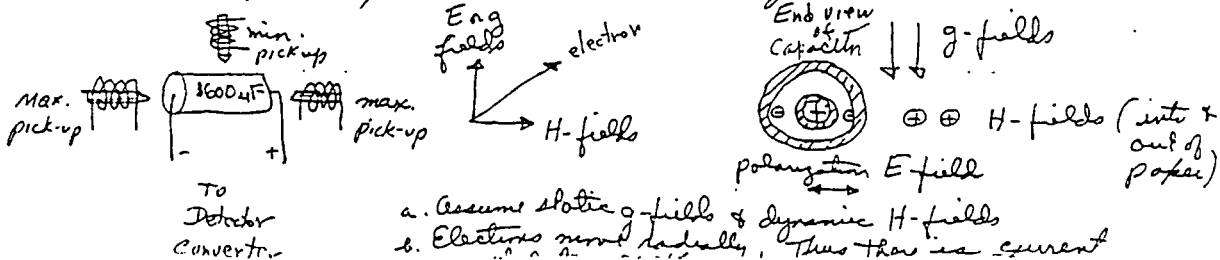 min.
pick-up
Max.
pick-up
1600 µF
max.
pick-up
- +
To
Detector
Convertr.
E or g
fields
electron
H-fields
End view
of
Capacitor
g-fields
H-fields (into &
out of
paper)
polarization E field
a. Assume static g-fields & dynamic H-fields
b. Electrons move radially, Thus thar is current